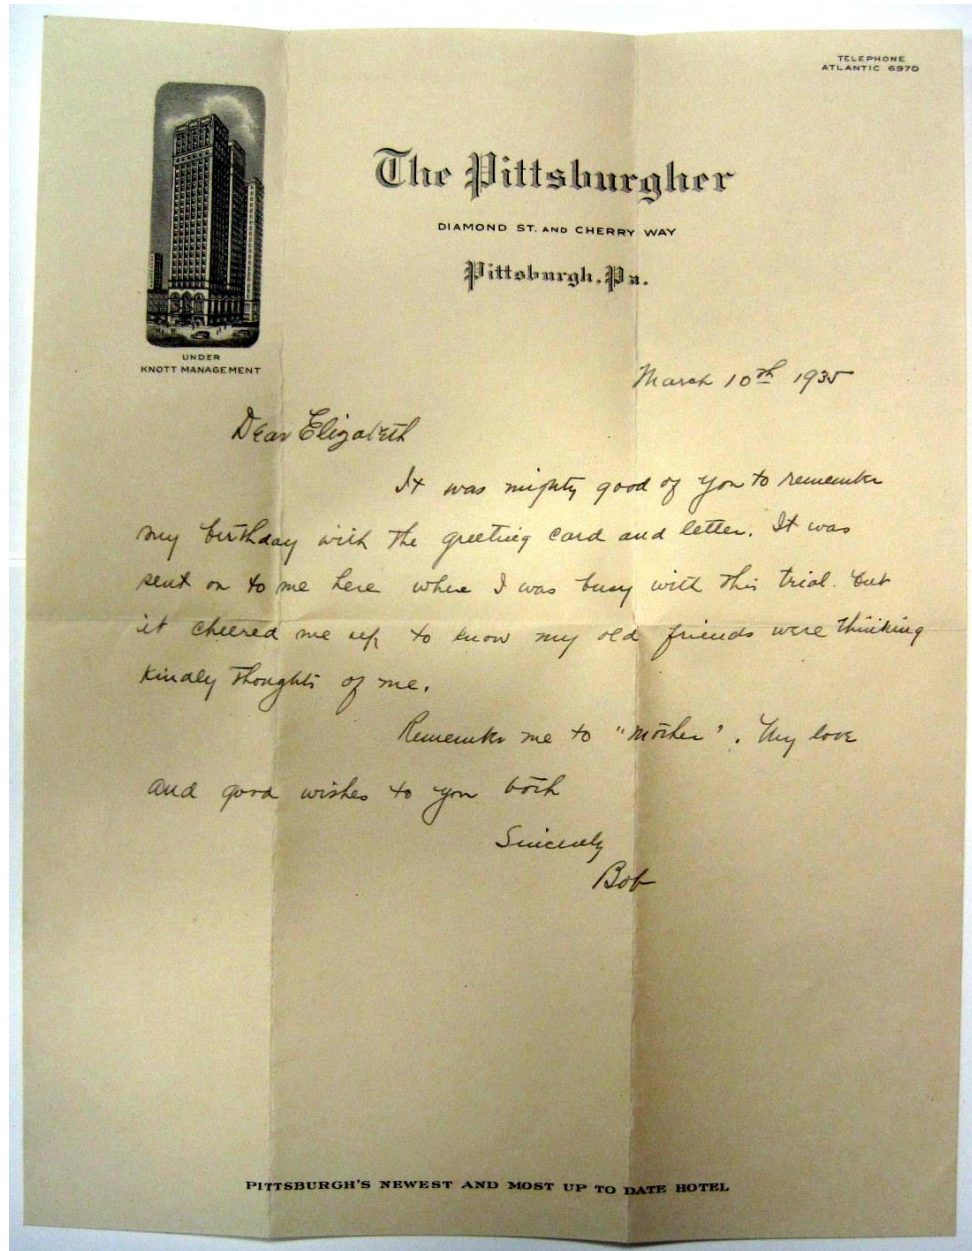 TELEPHONE
ATLANTIC 6970
The Pittsburgher
DIAMOND ST. AND CHERRY WAY
Pittsburgh, Pa.
UNDER
KNOTT MANAGEMENT
March 10th 1935
Dear Elizabeth
It was mighty good of you to remember
my birthday with the greeting card and letter. It was
sent on to me here where I was busy with this trial. but
it cheered me up to know my old friends were thinking
kindly thoughts of me.
Remember me to "Mother". My love
and good wishes to you both
Sincerely
Bob
PITTSBURGH'S NEWEST AND MOST UP TO DATE HOTEL